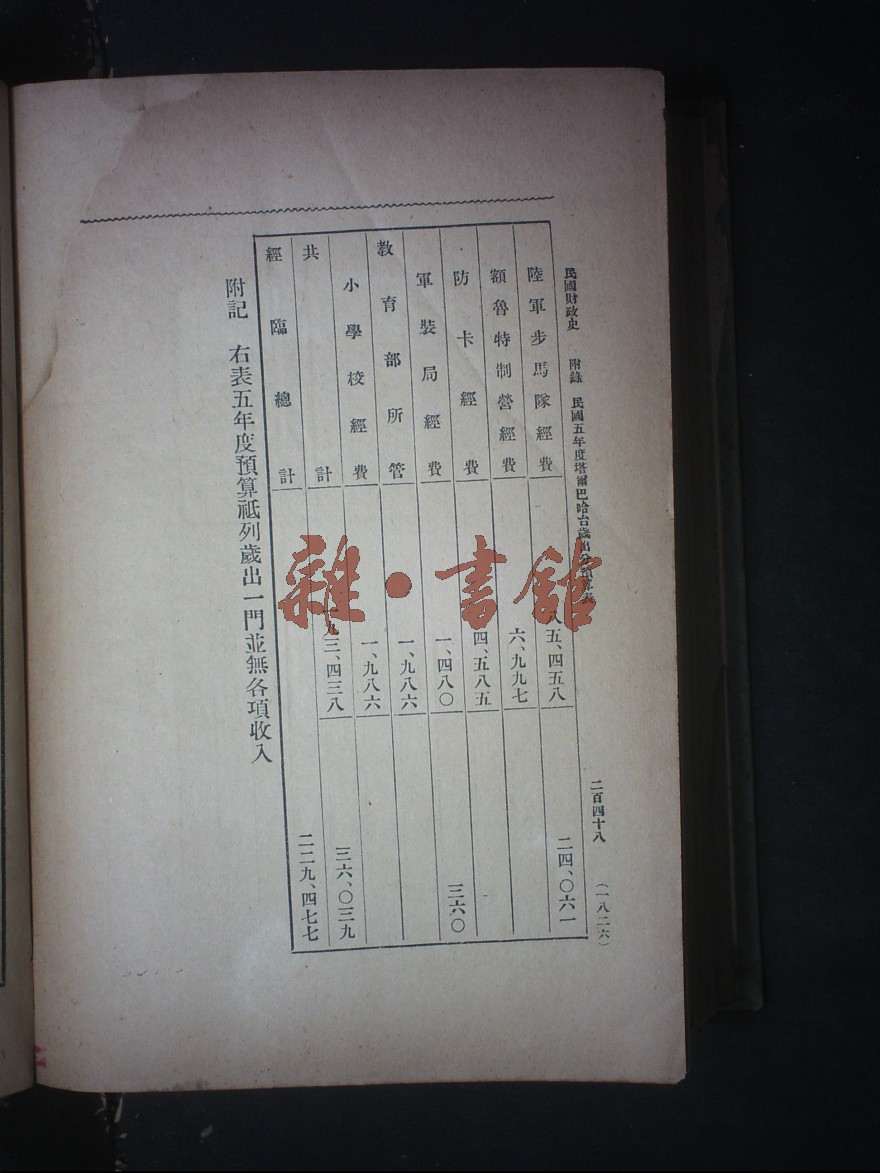 民國財政史　附錄　民國五年度塔爾巴哈台歲出分預算表　二百四十八　（一八二六）
陸軍步馬隊經費　八五、四五八　二四、〇六一
額魯特制營經費　六、九九七
防卡經費　四、五八五
軍裝局經費　一、四八〇　三六〇
教育部所管　一、九八六
小學校經費　一、九八六
共計　九三、四三八　三六、〇三九
經臨總計　二二九、四七七
附記　右表五年度預算祗列歲出一門並無各項收入
雜·書館